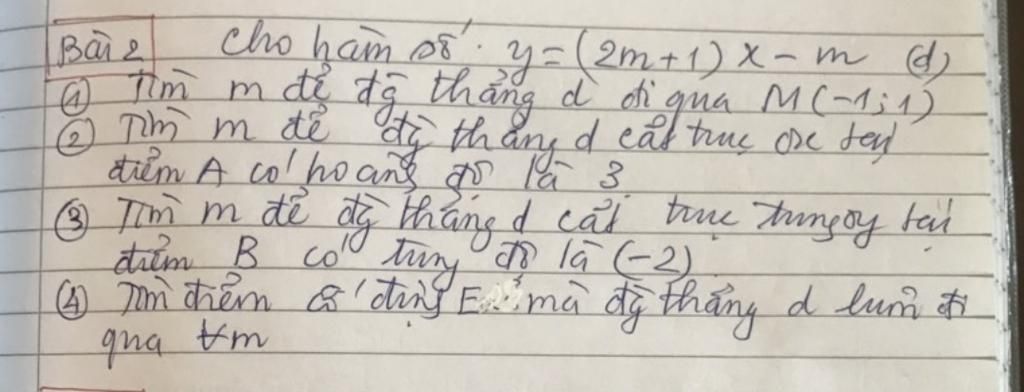 Bài 2 Cho hàm số: y = (2m+1) x - m (d)
① Tìm m để đg thẳng d đi qua M(-1; 1)
② Tìm m để đg thẳng d cắt trục ox tại
điểm A có hoành độ là 3
③ Tìm m để đg thẳng d cắt trục tung oy tại
điểm B có tung độ là (-2)
④ Tìm điểm cố định E mà đg thẳng d luôn đi
qua ∀m